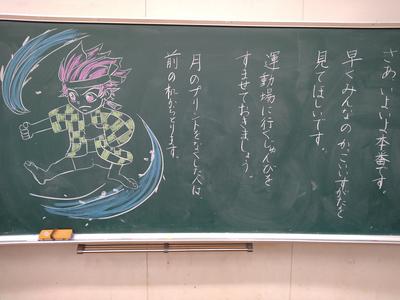 さあ、いよいよ本番です。
早くみんなのかっこいいすがたを
見てほしいです。
運動場に行くじゅんびを
すませておきましょう。
月のプリントをなくした人は、
前の机からとります。